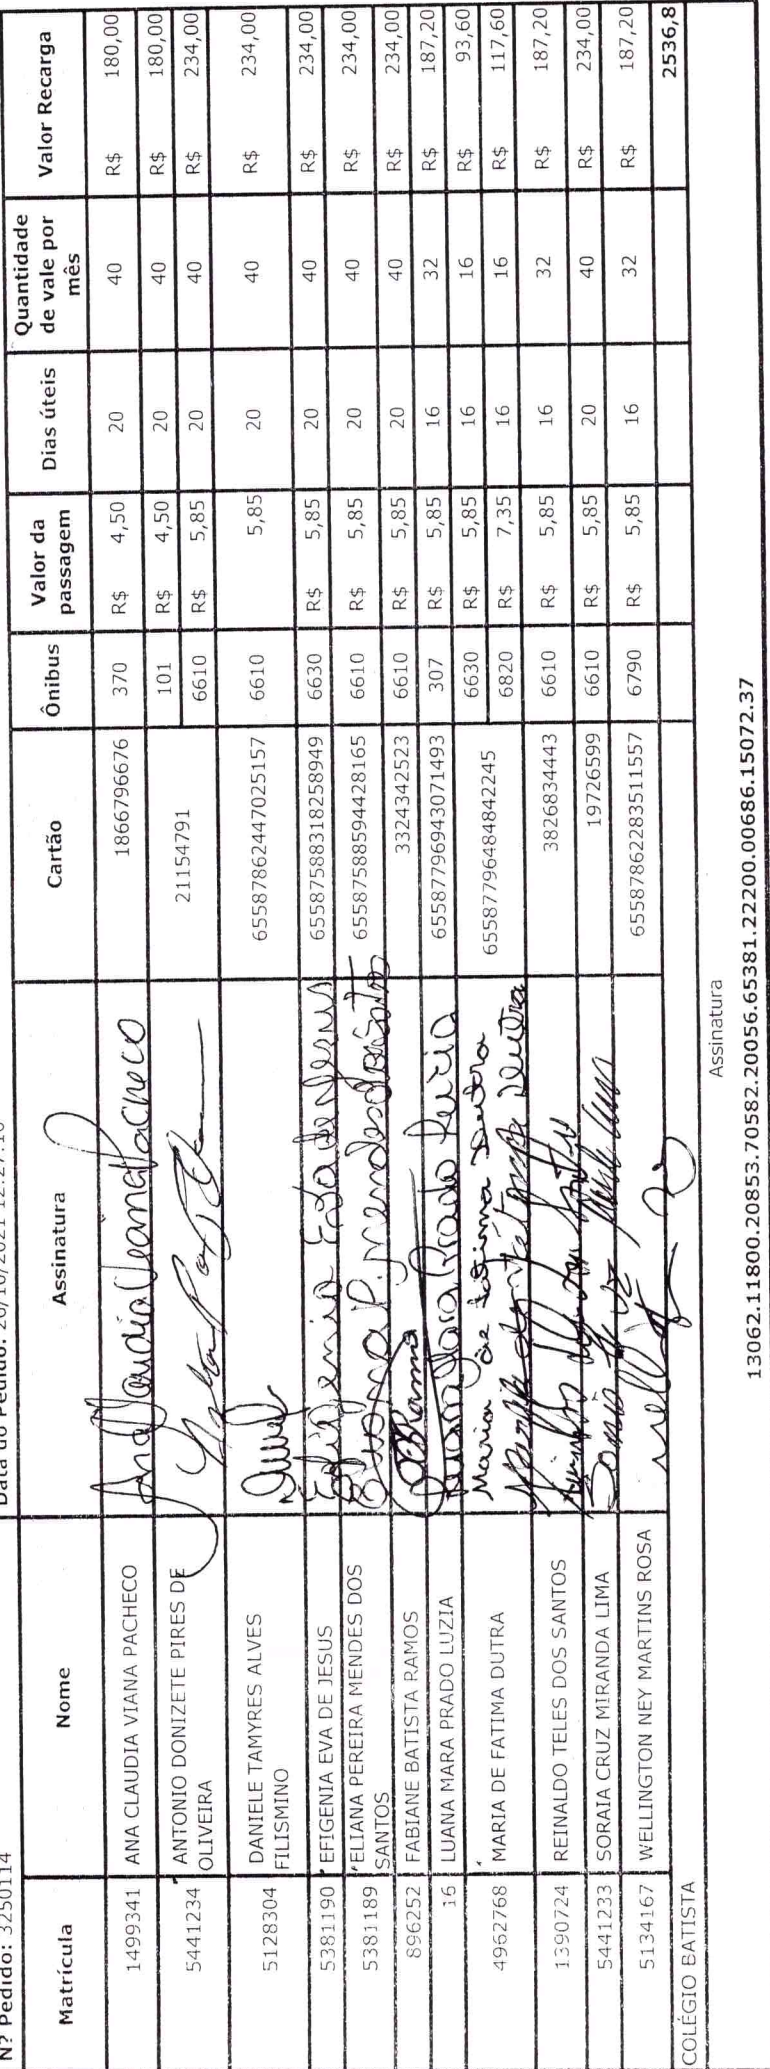 Nº Pedido: 3250114 Data do Pedido: 20/10/2021 12:27:16
Matrícula Nome Assinatura Cartão Ônibus Valor da passagem Dias úteis Quantidade de vale por mês Valor Recarga
1499341 ANA CLAUDIA VIANA PACHECO Ana Claudia Viana Pacheco 1866796676 370 R$ 4,50 20 40 R$ 180,00
5441234 ANTONIO DONIZETE PIRES DE OLIVEIRA 21154791 101 R$ 4,50 20 40 R$ 180,00
6610 R$ 5,85 20 40 R$ 234,00
5128304 DANIELE TAMYRES ALVES FILISMINO 65587862447025157 6610 5,85 20 40 R$ 234,00
5381190 EFIGENIA EVA DE JESUS Efigenia Eva de Jesus 65587588318258949 6630 R$ 5,85 20 40 R$ 234,00
5381189 ELIANA PEREIRA MENDES DOS SANTOS Eliana P. mendes dos Santos 65587588594428165 6610 R$ 5,85 20 40 R$ 234,00
896252 FABIANE BATISTA RAMOS FBRamos 3324342523 6610 R$ 5,85 20 40 R$ 234,00
16 LUANA MARA PRADO LUZIA Luana Mara Prado Luzia 65587796943071493 307 R$ 5,85 16 32 R$ 187,20
4962768 MARIA DE FATIMA DUTRA Maria de Fatima Dutra 65587796484842245 6630 R$ 5,85 16 16 R$ 93,60
Maria de Fatima Dutra 6820 R$ 7,35 16 16 R$ 117,60
1390724 REINALDO TELES DOS SANTOS 3826834443 6610 R$ 5,85 16 32 R$ 187,20
5441233 SORAIA CRUZ MIRANDA LIMA 19726599 6610 R$ 5,85 20 40 R$ 234,00
5134167 WELLINGTON NEY MARTINS ROSA 65587862283511557 6790 R$ 5,85 16 32 R$ 187,20
2536,8
COLÉGIO BATISTA
Assinatura
13062.11800.20853.70582.20056.65381.22200.00686.15072.37